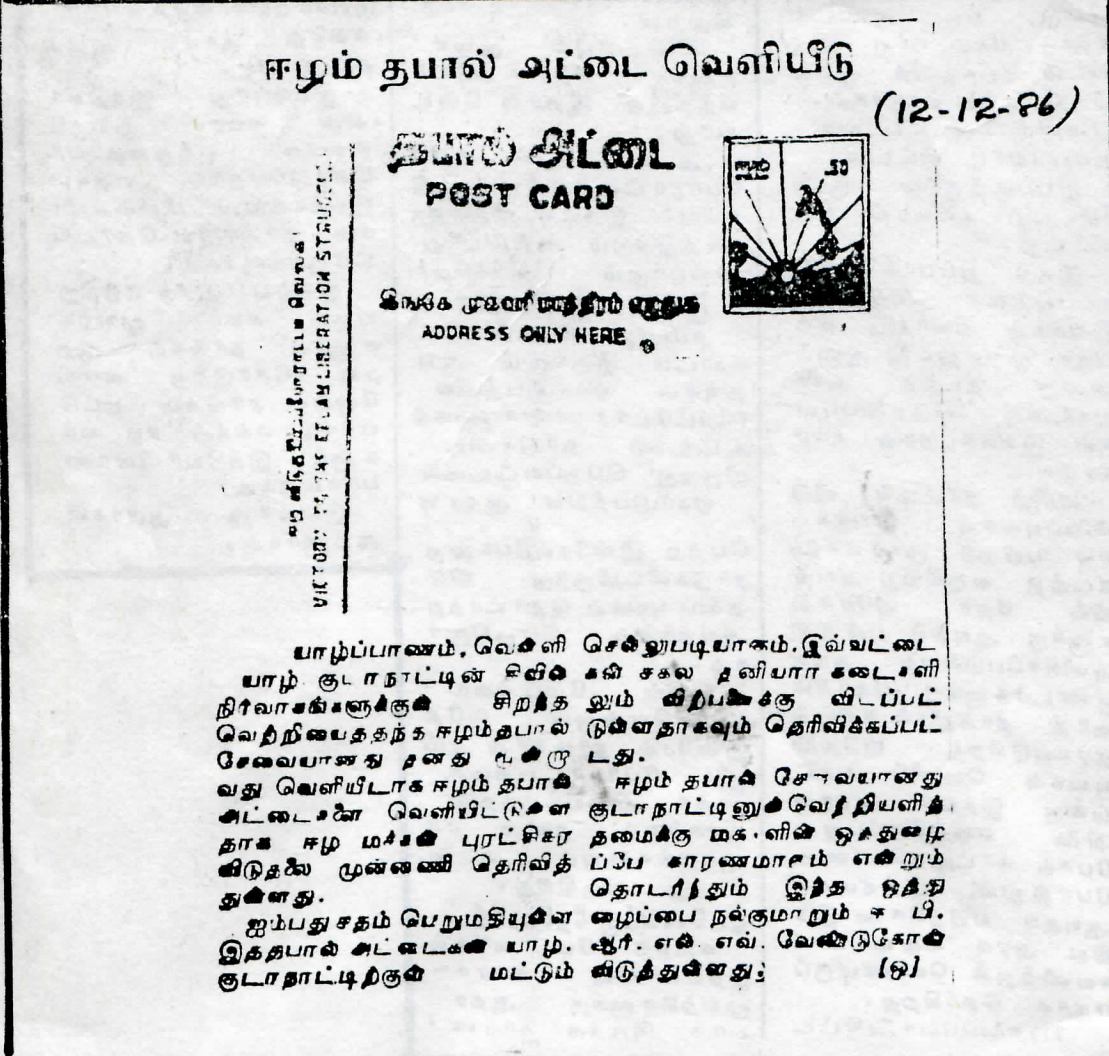 ஈழம் தபால் அட்டை வெளியீடு
(12-12-86)
தபால் அட்டை
POST CARD
.50
இங்கே முகவரி மாத்திரம் எழுதுக
ADDRESS ONLY HERE
VICTORY EELAM LIBERATION STRUGGLE
யாழ்ப்பாணம், வெள்ளி
யாழ் குடாநாட்டின் சிவில்
நிர்வாகங்களுக்குள் சிறந்த
வெற்றியைத்தந்த ஈழம்தபால்
சேவையானது தனது மூன்றா
வது வெளியீடாக ஈழம் தபால்
அட்டைகளை வெளியிட்டுள்ள
தாக ஈழ மக்கள் புரட்சிகர
விடுதலை முன்னணி தெரிவித்
துள்ளது.
ஐம்பது சதம் பெறுமதியுள்ள
இத்தபால் அட்டைகள் யாழ்.
குடாநாட்டிற்குள் மட்டும்
செல்லுபடியாகும். இவ்வட்டை
கள் சகல தனியார் கடைகளி
லும் விற்பனைக்கு விடப்பட்
டுள்ளதாகவும் தெரிவிக்கப்பட்
டது.
ஈழம் தபால் சேவையானது
குடாநாட்டினுள் வெற்றியளித்
தமைக்கு மக்களின் ஒத்துழை
ப்பே காரணமாகும் என்றும்
தொடர்ந்தும் இந்த ஒத்து
ழைப்பை நல்குமாறும் ஈ. பி.
ஆர். எல். எவ். வேண்டுகோள்
விடுத்துள்ளது. [ஒ]